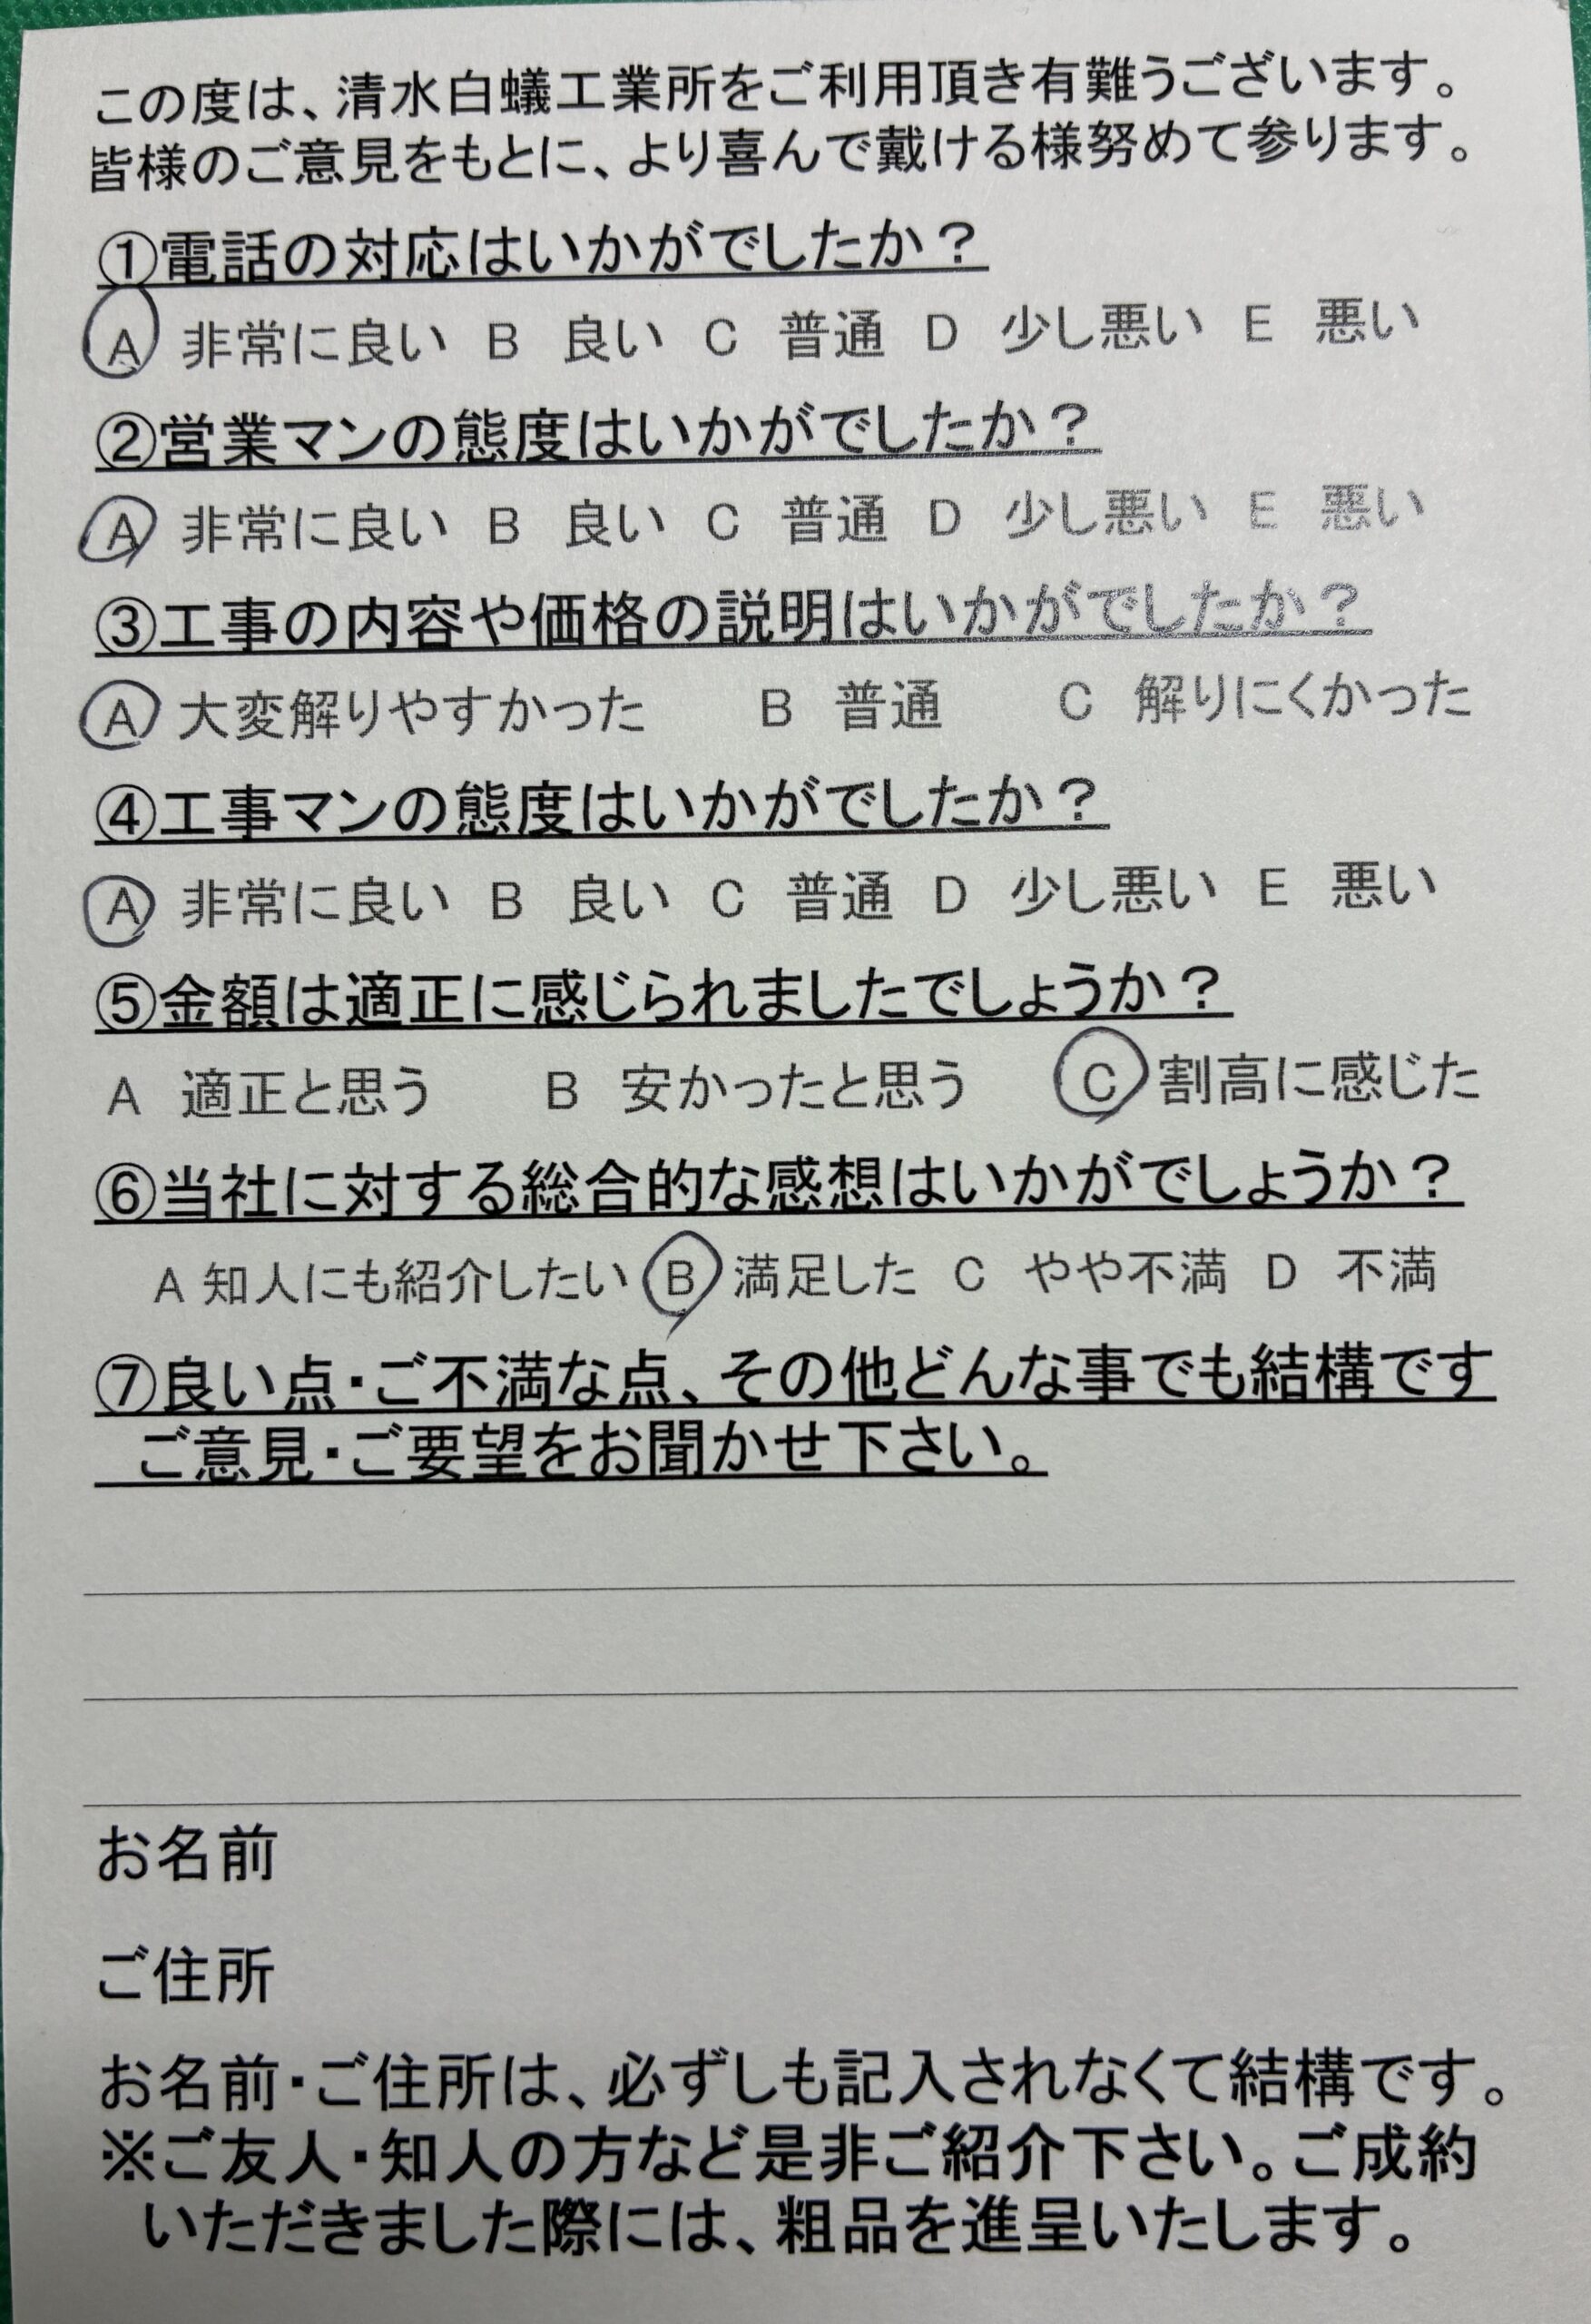 この度は、清水白蟻工業所をご利用頂き有難うございます。
皆様のご意見をもとに、より喜んで戴ける様努めて参ります。
①電話の対応はいかがでしたか？
A 非常に良い B 良い C 普通 D 少し悪い E 悪い
②営業マンの態度はいかがでしたか？
A 非常に良い B 良い C 普通 D 少し悪い E 悪い
③工事の内容や価格の説明はいかがでしたか？
A 大変解りやすかった B 普通 C 解りにくかった
④工事マンの態度はいかがでしたか？
A 非常に良い B 良い C 普通 D 少し悪い E 悪い
⑤金額は適正に感じられましたでしょうか？
A 適正と思う B 安かったと思う C 割高に感じた
⑥当社に対する総合的な感想はいかがでしょうか？
A 知人にも紹介したい B 満足した C やや不満 D 不満
⑦良い点・ご不満な点、その他どんな事でも結構です
ご意見・ご要望をお聞かせ下さい。
お名前
ご住所
お名前・ご住所は、必ずしも記入されなくて結構です。
※ご友人・知人の方など是非ご紹介下さい。ご成約
いただきました際には、粗品を進呈いたします。